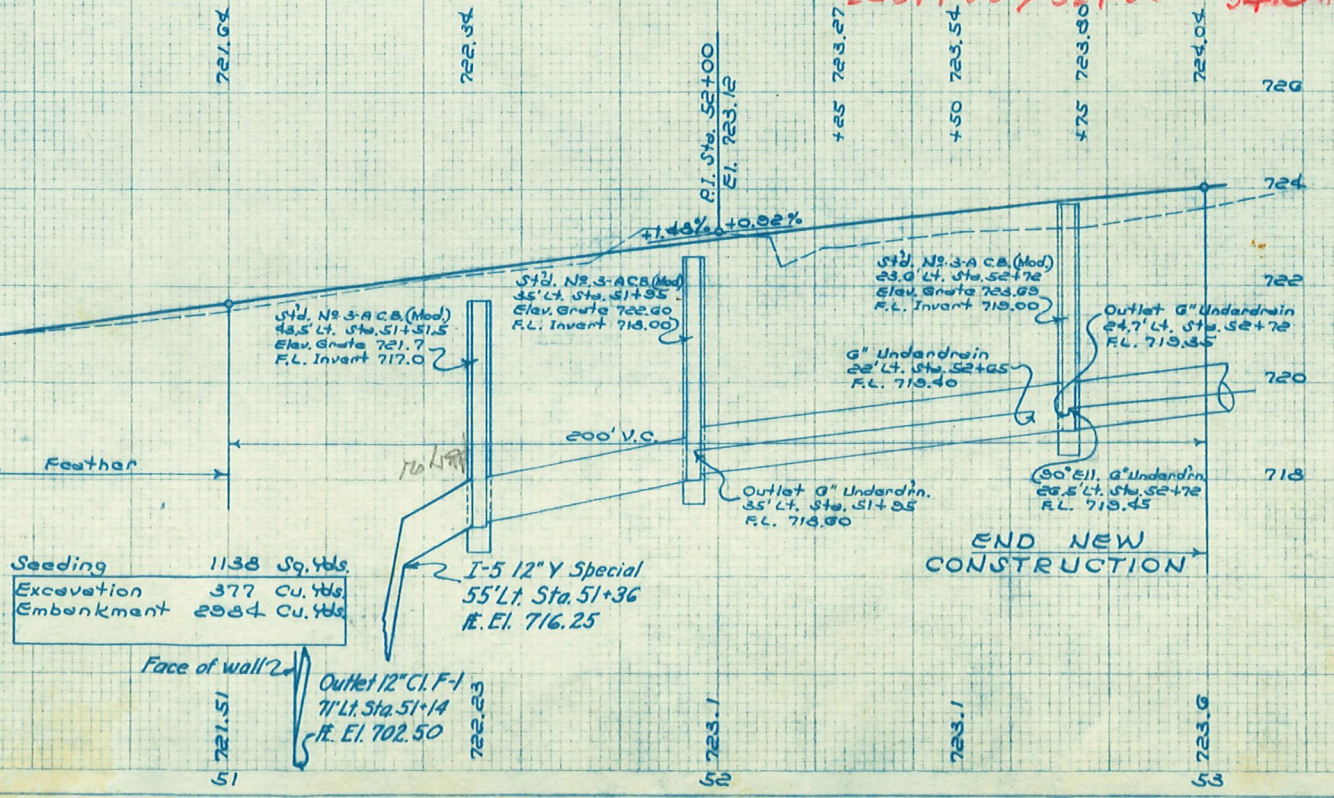 721.64
722.34
P.I. Sta. 52+00
El. 723.12
+25 723.27
+50 723.54
+75 723.80
724.04
726
724
722
720
718
+1.48% +0.92%
St'd. No. 3-A C.B. (Mod)
43.5' Lt. Sta. 51+51.5
Elev. Grate 721.7
F.L. Invert 717.0
St'd. No. 3-A C.B. (Mod)
35' Lt. Sta. 51+95
Elev. Grate 722.60
F.L. Invert 718.00
St'd. No. 3-A C.B. (Mod)
23.0' Lt. Sta. 52+72
Elev. Grate 723.69
F.L. Invert 719.00
Outlet 6" Underdrain
24.7' Lt. Sta. 52+72
F.L. 719.35
6" Underdrain
22' Lt. Sta. 52+65
F.L. 719.40
200' V.C.
Feather
Outlet 6" Underdrn.
35' Lt. Sta. 51+95
F.L. 718.60
90° Ell. 6" Underdrn.
26.5' Lt. Sta. 52+72
F.L. 719.45
END NEW
CONSTRUCTION
Seeding 1138 Sq. Yds.
Excavation 377 Cu. Yds.
Embankment 2984 Cu. Yds.
I-5 12" Y Special
55' Lt. Sta. 51+36
℄. El. 716.25
Face of wall
Outlet 12" C.I. F-1
71' Lt. Sta. 51+14
℄. El. 702.50
721.51
722.23
723.1
723.1
723.6
51
52
53